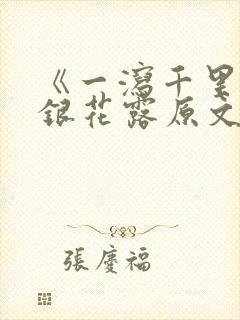 《一瀉千里
銀花露原文
張慶福